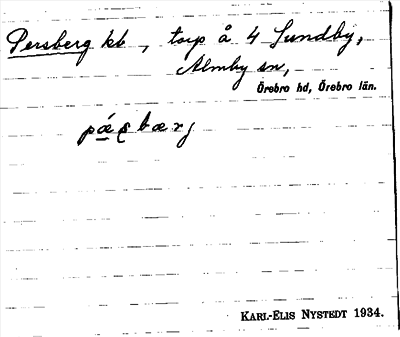 Persberg kb, torp å 4 Sundby,
Almby sn,
Örebro hd, Örebro län.
KARL-ELIS NYSTEDT 1934.